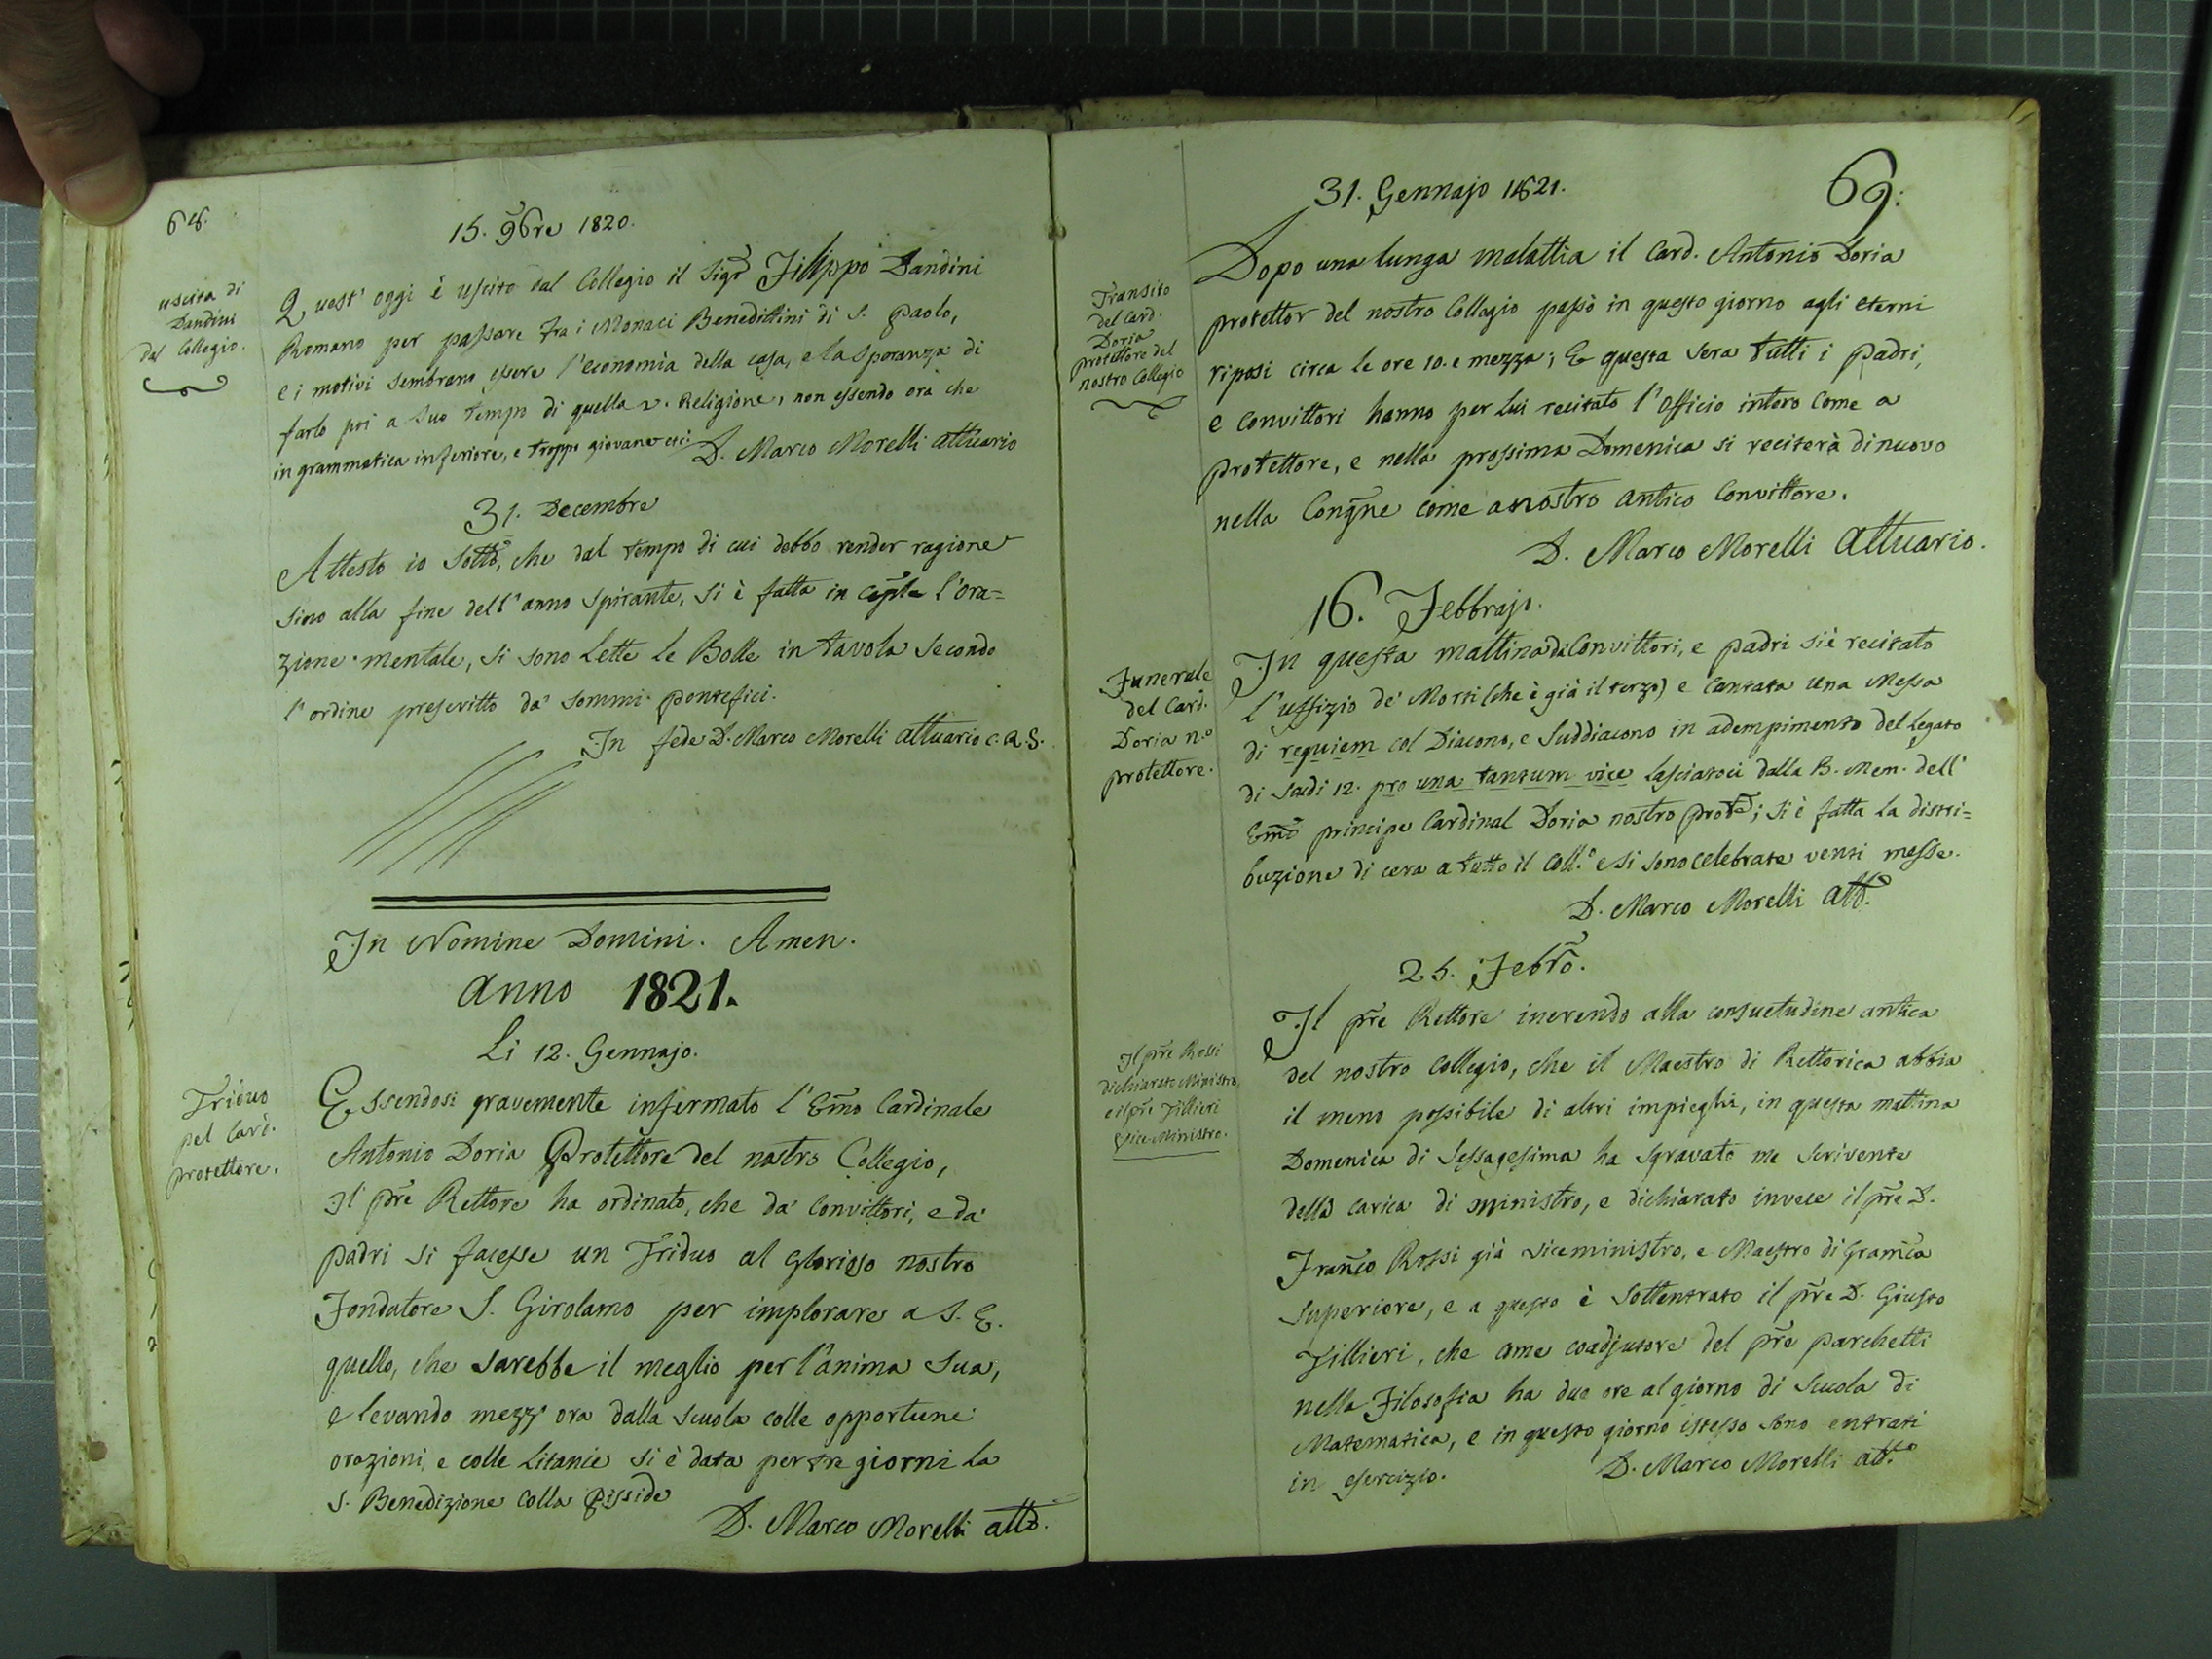 68.
15. 9bre 1820.
uscita di
Dandini
dal Collegio.
Quest' oggi è uscito dal Collegio il Sigr Filippo Dandini
Romano per passare fra i Monaci Benedittini di S. Paolo,
e i motivi sembrano essere l'economia della casa, e la speranza di
farlo poi a suo tempo di quella v. Religione, non essendo ora che
in grammatica inferiore, e troppo giovane etc:
D. Marco Morelli Attuario
31. Decembre
Attesto io sotto, che dal tempo di cui debbo render ragione
sino alla fine dell'anno spirante, si è fatta in l'ora=
zione mentale, si sono lette le Bolle in tavola secondo
l'ordine prescritto da' sommi pontefici.
In fede D. Marco Morelli attuario C.R.S.
In Nomine Domini. Amen.
Anno 1821.
Li 12. Gennajo.
Triduo
pel Card.
protettore.
Essendosi gravemente infermato l'Emo Cardinale
Antonio Doria Protettore del nostro Collegio,
Il pre Rettore ha ordinato, che da' Convittori, e da'
padri si facesse un Triduo al glorioso nostro
Fondatore S. Girolamo per implorare a S. E.
quello, che sarebbe il meglio per l'anima sua,
e levando mezz' ora dalla scuola colle opportune
orazioni, e colle Litanie si è data per tre giorni la
S. Benedizione colla Pisside
D. Marco Morelli atto.
69:
31. Gennajo 1821.
Transito
del Card.
Doria
protettore del
nostro Collegio
Dopo una lunga malattia il Card. Antonio Doria
protettor del nostro Collegio passò in questo giorno agli eterni
riposi circa le ore 10. e mezza; E questa sera tutti i padri,
e Convittori hanno per lui recitato l'Officio intero come a
protettore, e nella prossima Domenica si reciterà di nuovo
nella Congne come a nostro antico Convittore.
D. Marco Morelli Attuario.
16. Febbrajo.
Funerale
del Card.
Doria n.o
protettore.
In questa mattina da Convittori, e padri si è recitato
l'uffizio de' Morti (che è già il terzo) e cantata una Messa
di requiem col Diacono, e Suddiacono in adempimento del Legato
di scudi 12. pro una tantum vice lasciatoci dalla B. Mem. dell'
Emo principe Cardinal Doria nostro prote; si è fatta la distri=
buzione di cera a tutto il Coll.o e si sono celebrate venti messe.
D. Marco Morelli atto.
25. Febro.
Il pre Rossi
dichiarato Ministro,
e il pre Fillieri
Vice Ministro.
Il pre Rettore inerendo alla consuetudine antica
del nostro Collegio, che il Maestro di Rettorica abbia
il meno possibile di altri impieghi, in questa mattina
Domenica di Sessagesima ha sgravato me scrivente
della carica di ministro, e dichiarato invece il pre D.
Franco Rossi già viceministro, e Maestro di Gramca
superiore, e a questo è sottentrato il pre D. Giusto
Fillieri, che come coadjutore del pre Parchetti
nella Filosofia ha due ore al giorno di scuola di
Matematica, e in questo giorno istesso sono entrati
in esercizio.
D. Marco Morelli att.o